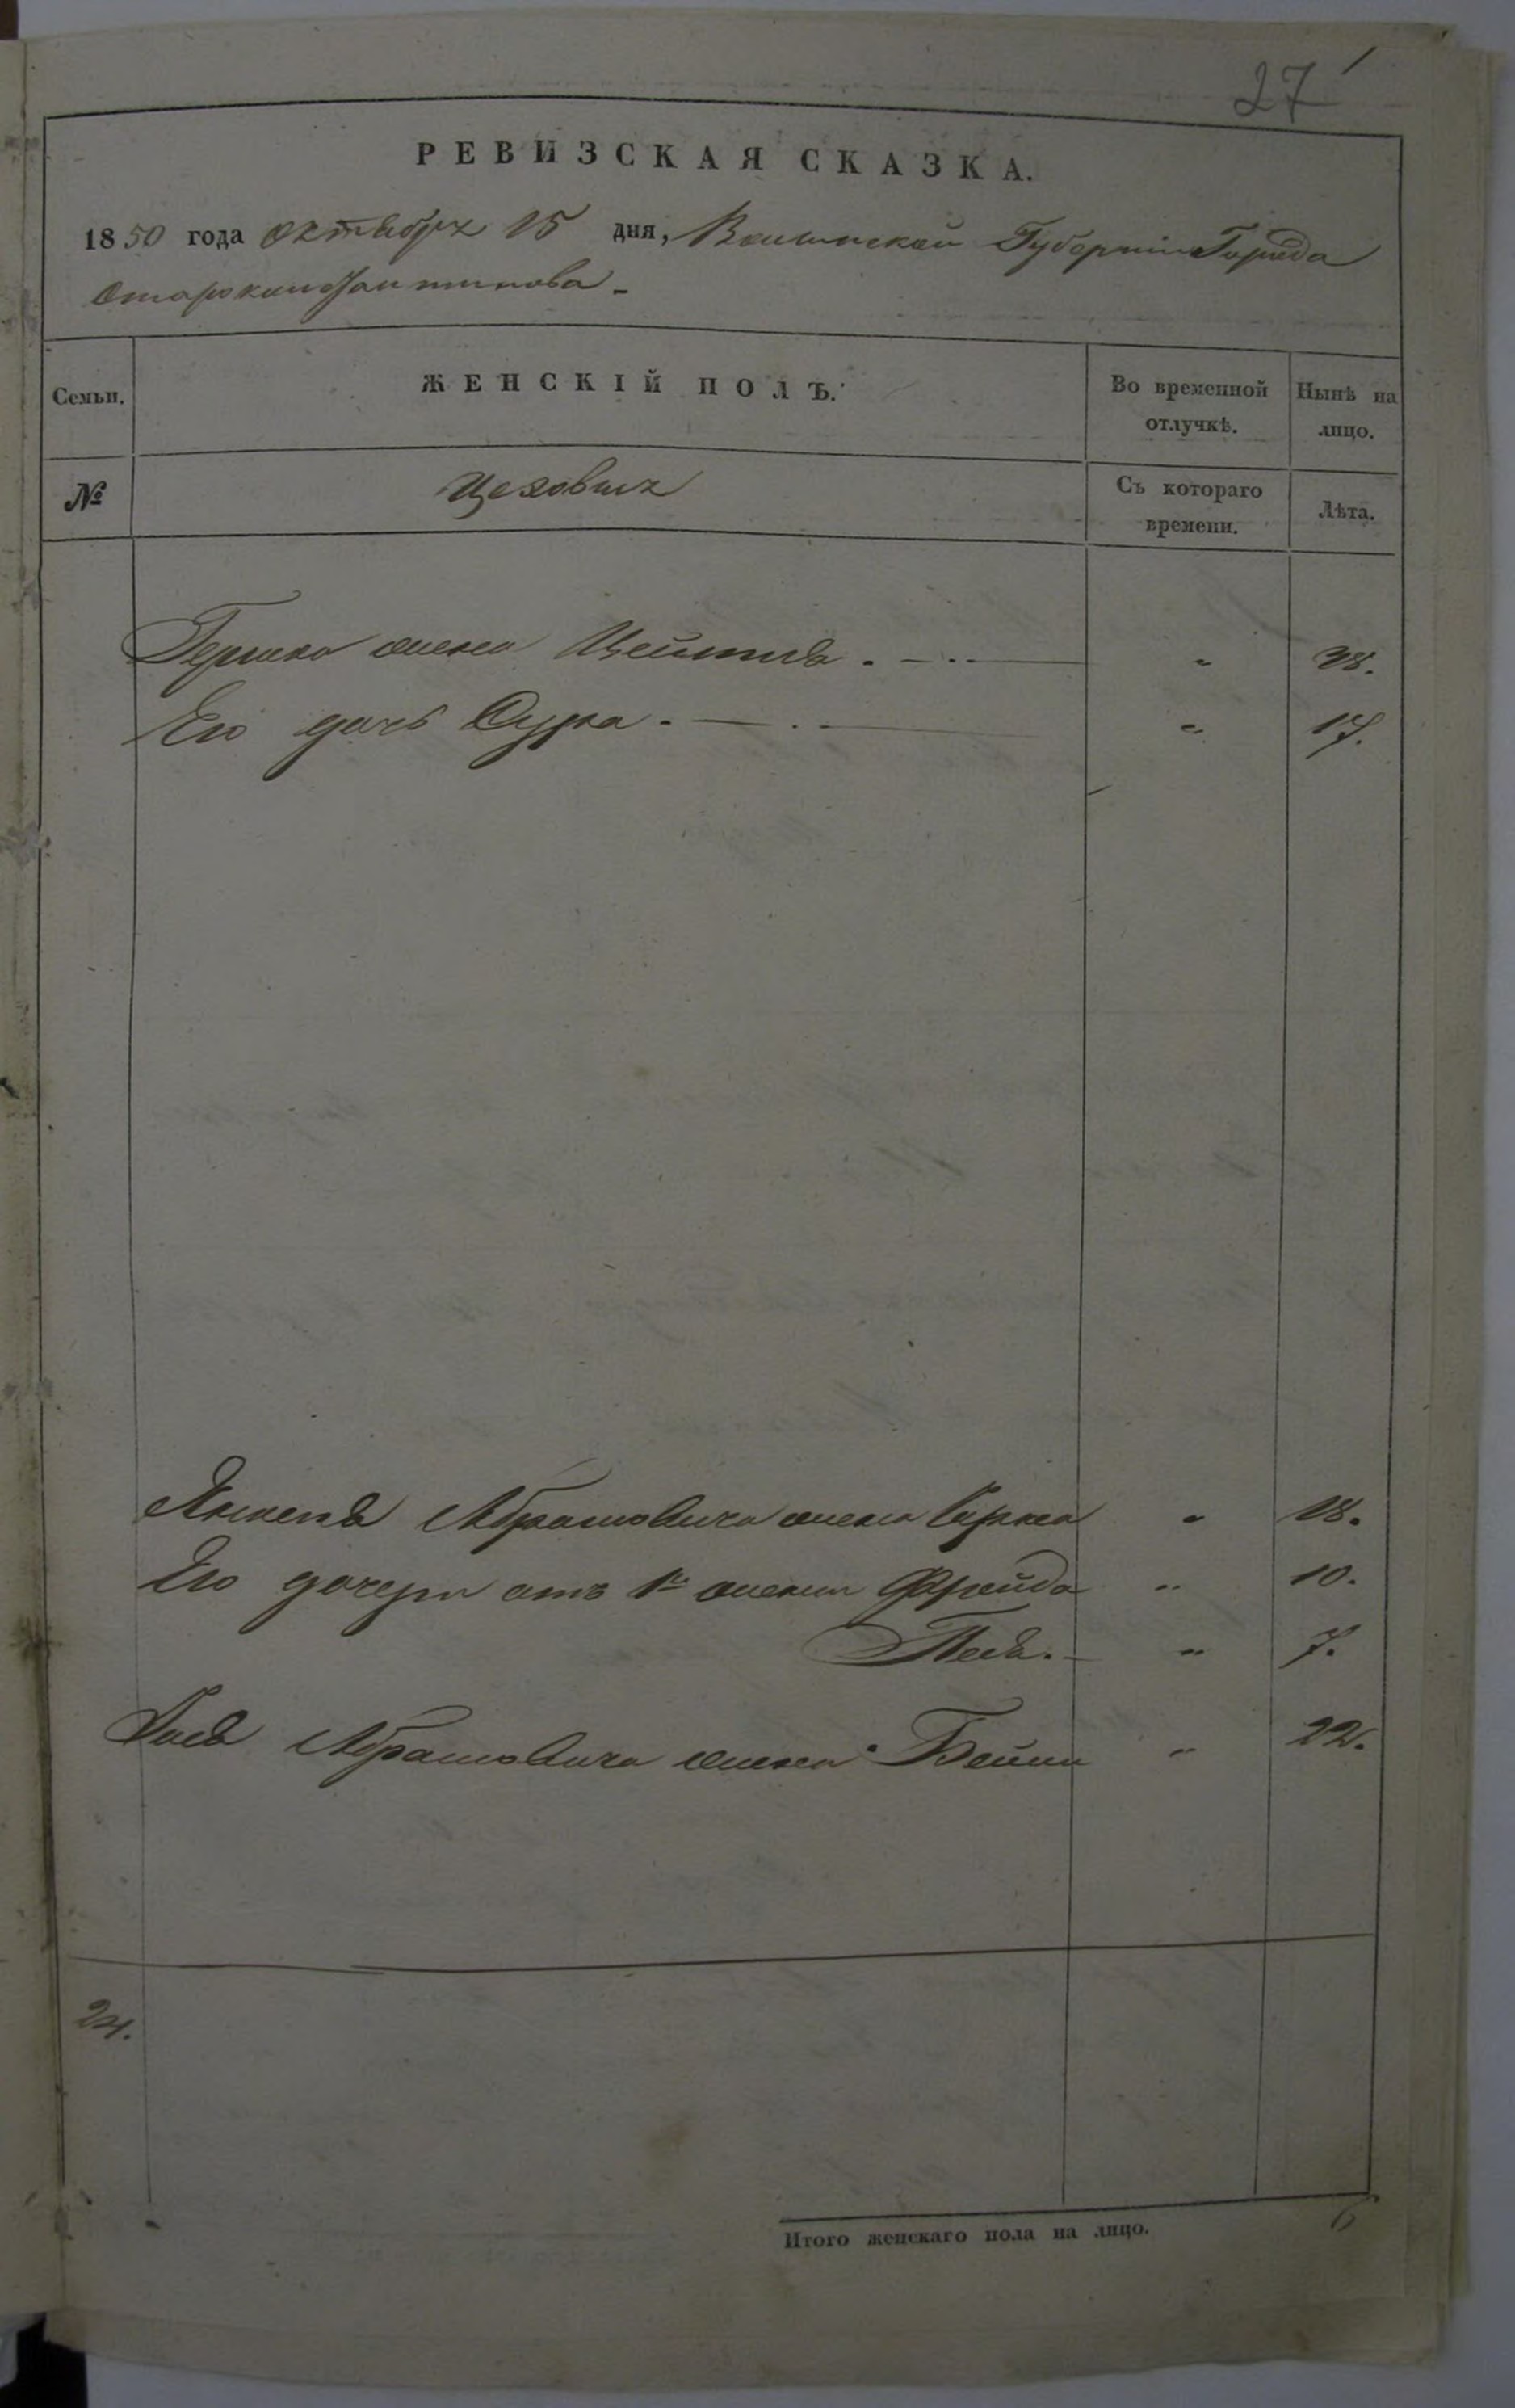 27
РЕВИЗСКАЯ СКАЗКА.
1850 года Октября 15 дня, Волынской Губернии Города
Староконстантинова
Семьи.
ЖЕНСКІЙ ПОЛЪ.
Во временной отлучкѣ.
Нынѣ на лицо.
№
Цеховых
Съ котораго времени.
Лѣта.
Гершка жена Цейтля . — „ 38.
Его дочь Сура . — „ 17.
Абрамовича жена Сурка „ 18.
Его дочери отъ 1й жены Фрейда „ 10.
Песя. „ 7.
Абрамовича жена Бейла „ 22.
24.
Итого женскаго пола на лицо. 6